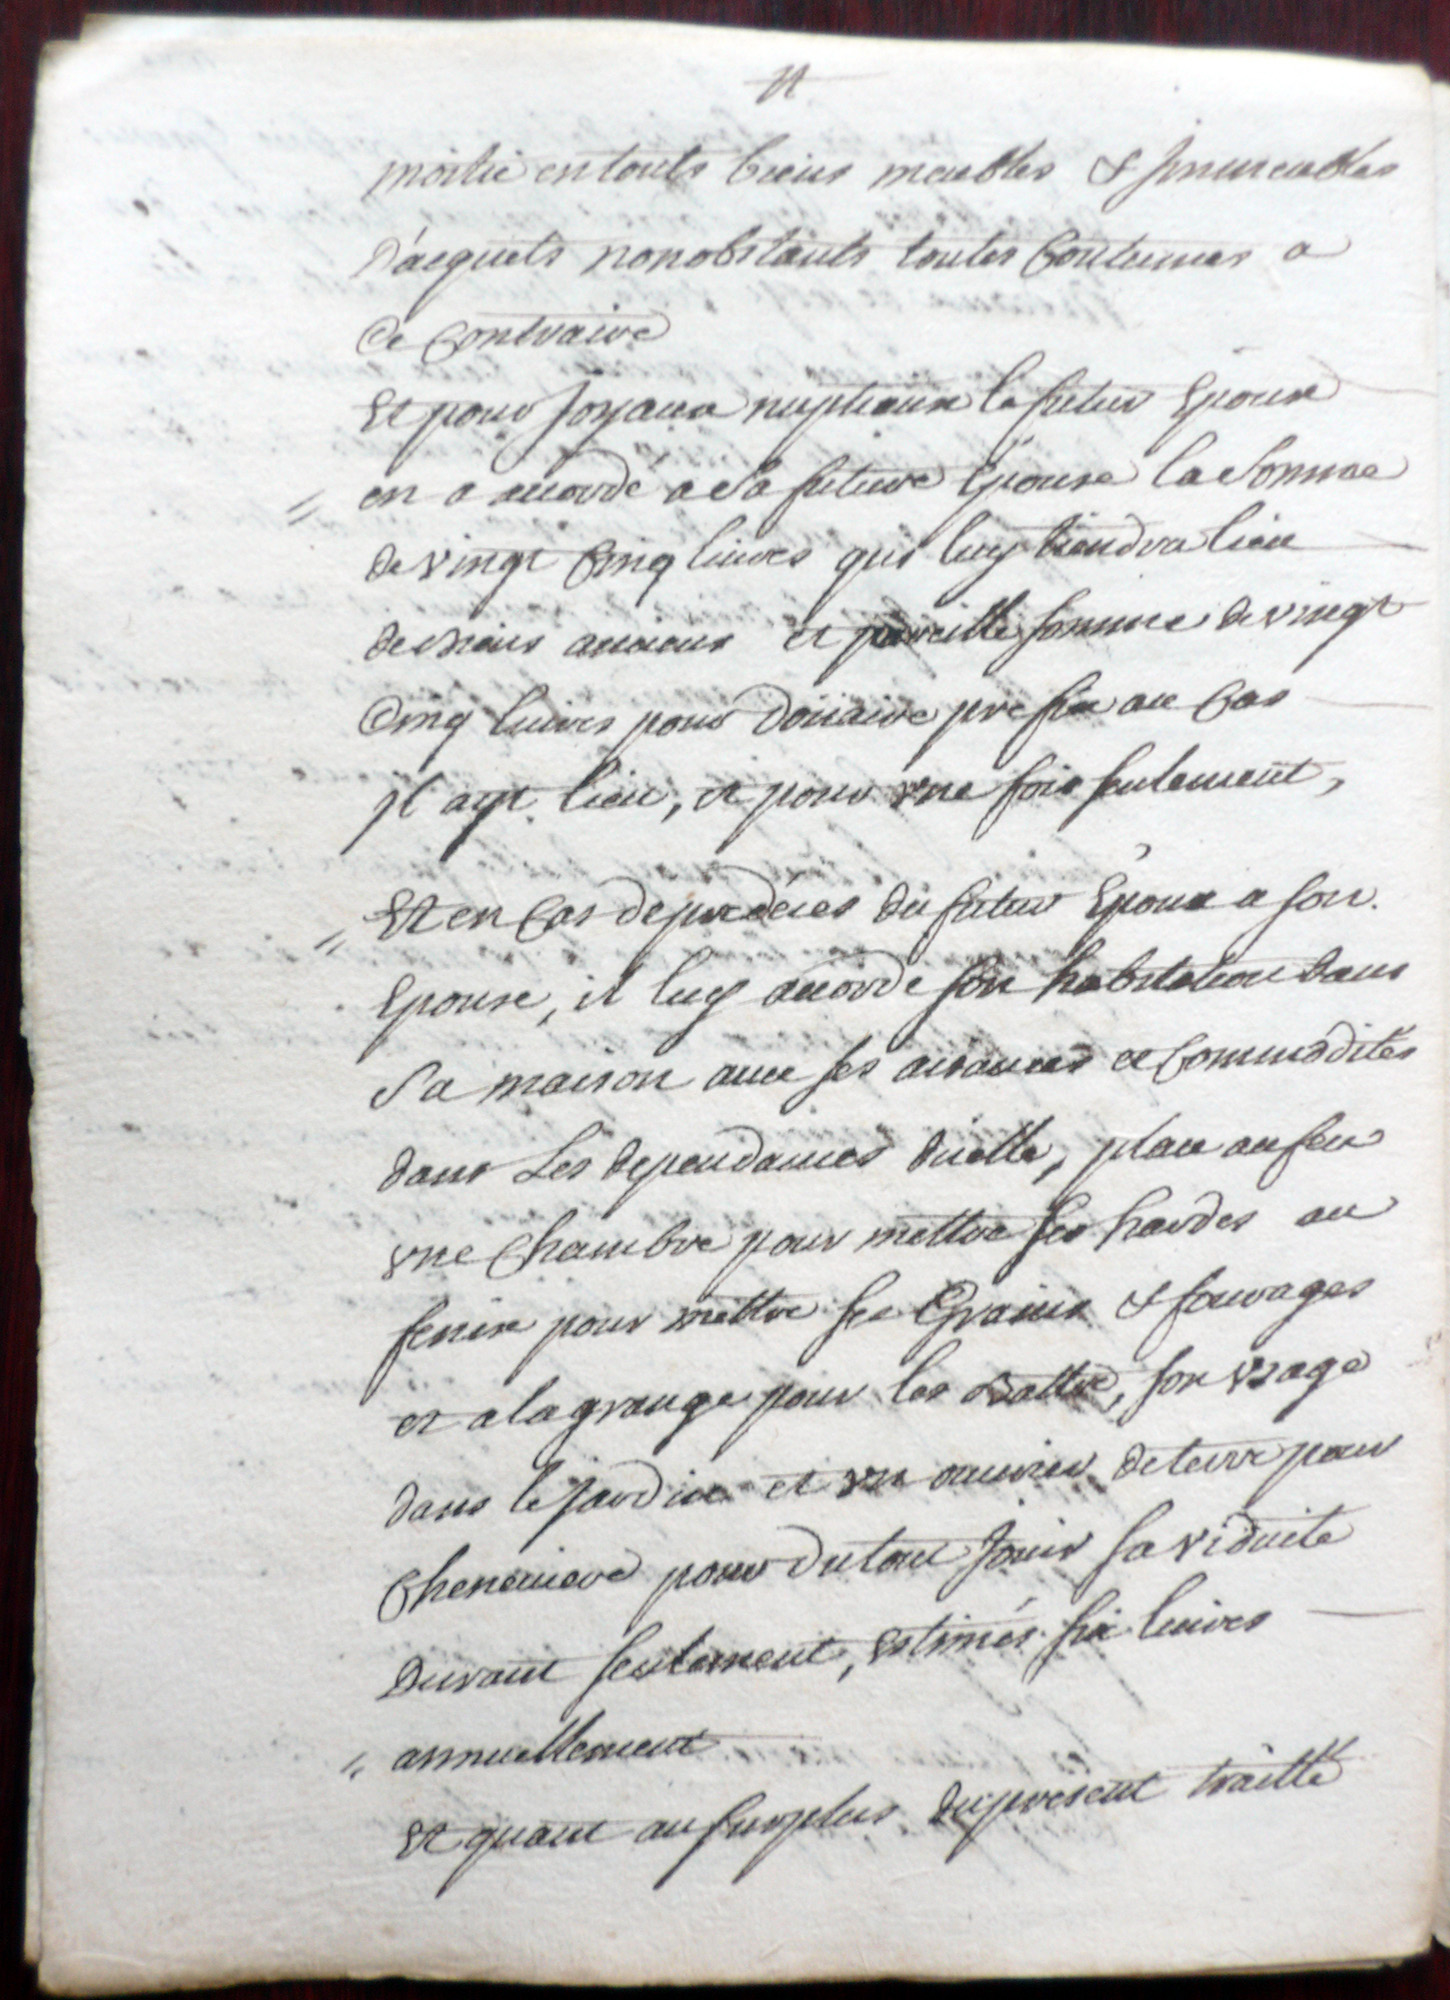 moitié en touts biens meubles & jmmeubles
d'acquets nonobstants toutes Coutumes a
Ce Contraire
Et pour joyaux nuptiaux le futur Epoux
en a accordé a Sa future Epouse la Somme
de vingt Cinq livres qui luy tiendra lieu
de moins et pareille somme de vingt
Cinq livres pour doüaire prefix au Cas
jl ayt lieu, et pour vne fois seulement,
Et en Cas de predéces du futur Epoux a son
Epouse, il luy accorde son habitation dans
Sa maison avec ses aisances et Commodités
dans Les dependances dicelle, place au feu
vne Chambre pour mettre ses hardes au
fenix pour mettre ses Grains & fourages
et a la grange pour les Battre, son vsage
dans le jardin et vn ouvrier de terre pour
Cheneviere pour du tout Jouir sa viduité
Durant seulement, Estimés six livres
annuellement
Et quant au surplus du present traitté